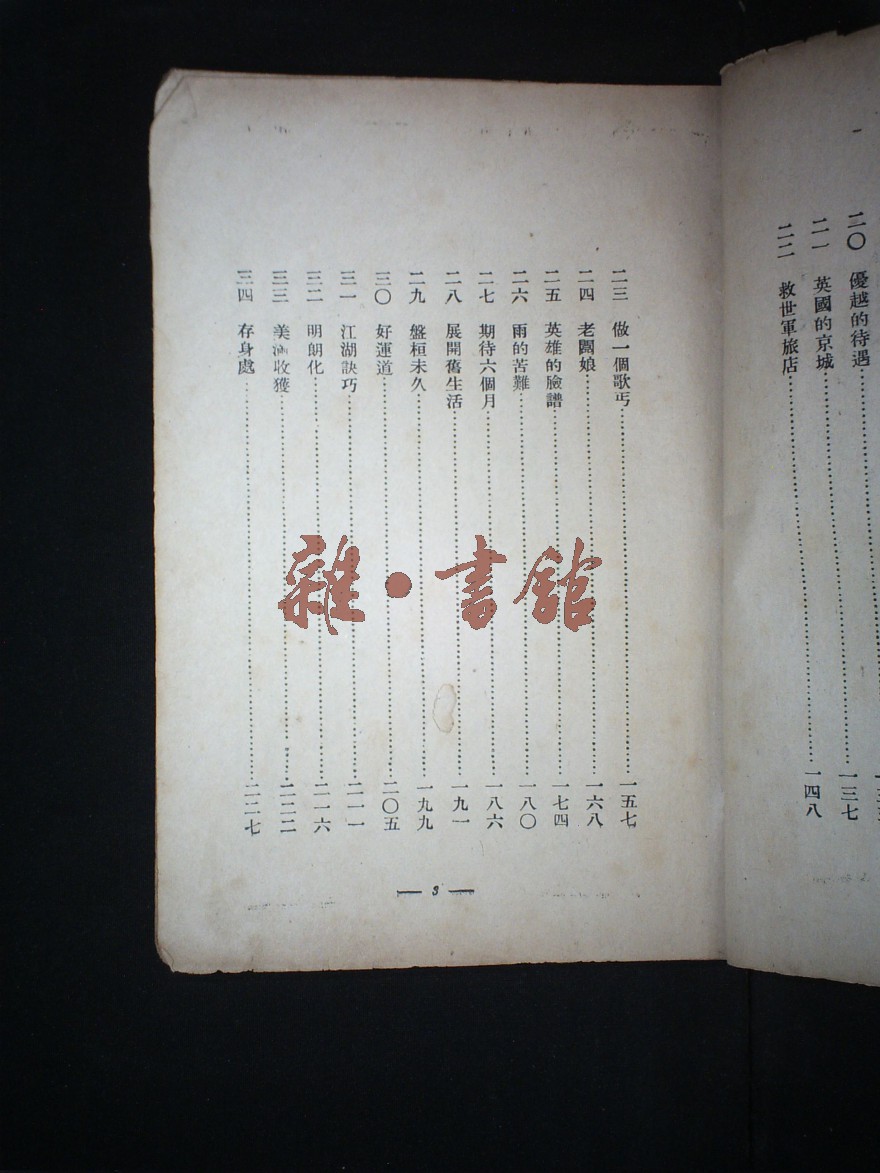 二〇 優越的待遇
二一 英國的京城……一三七
二二 救世軍旅店……一四八
二三 做一個歌丐……一五七
二四 老闆娘……一六八
二五 英雄的臉譜……一七四
二六 雨的苦難……一八〇
二七 期待六個月……一八六
二八 展開舊生活……一九一
二九 盤桓未久……一九九
三〇 好運道……二〇五
三一 江湖訣巧……二一一
三二 明朗化……二一六
三三 美滿收獲……二二二
三四 存身處……二二七
— 3 —
雜·書館